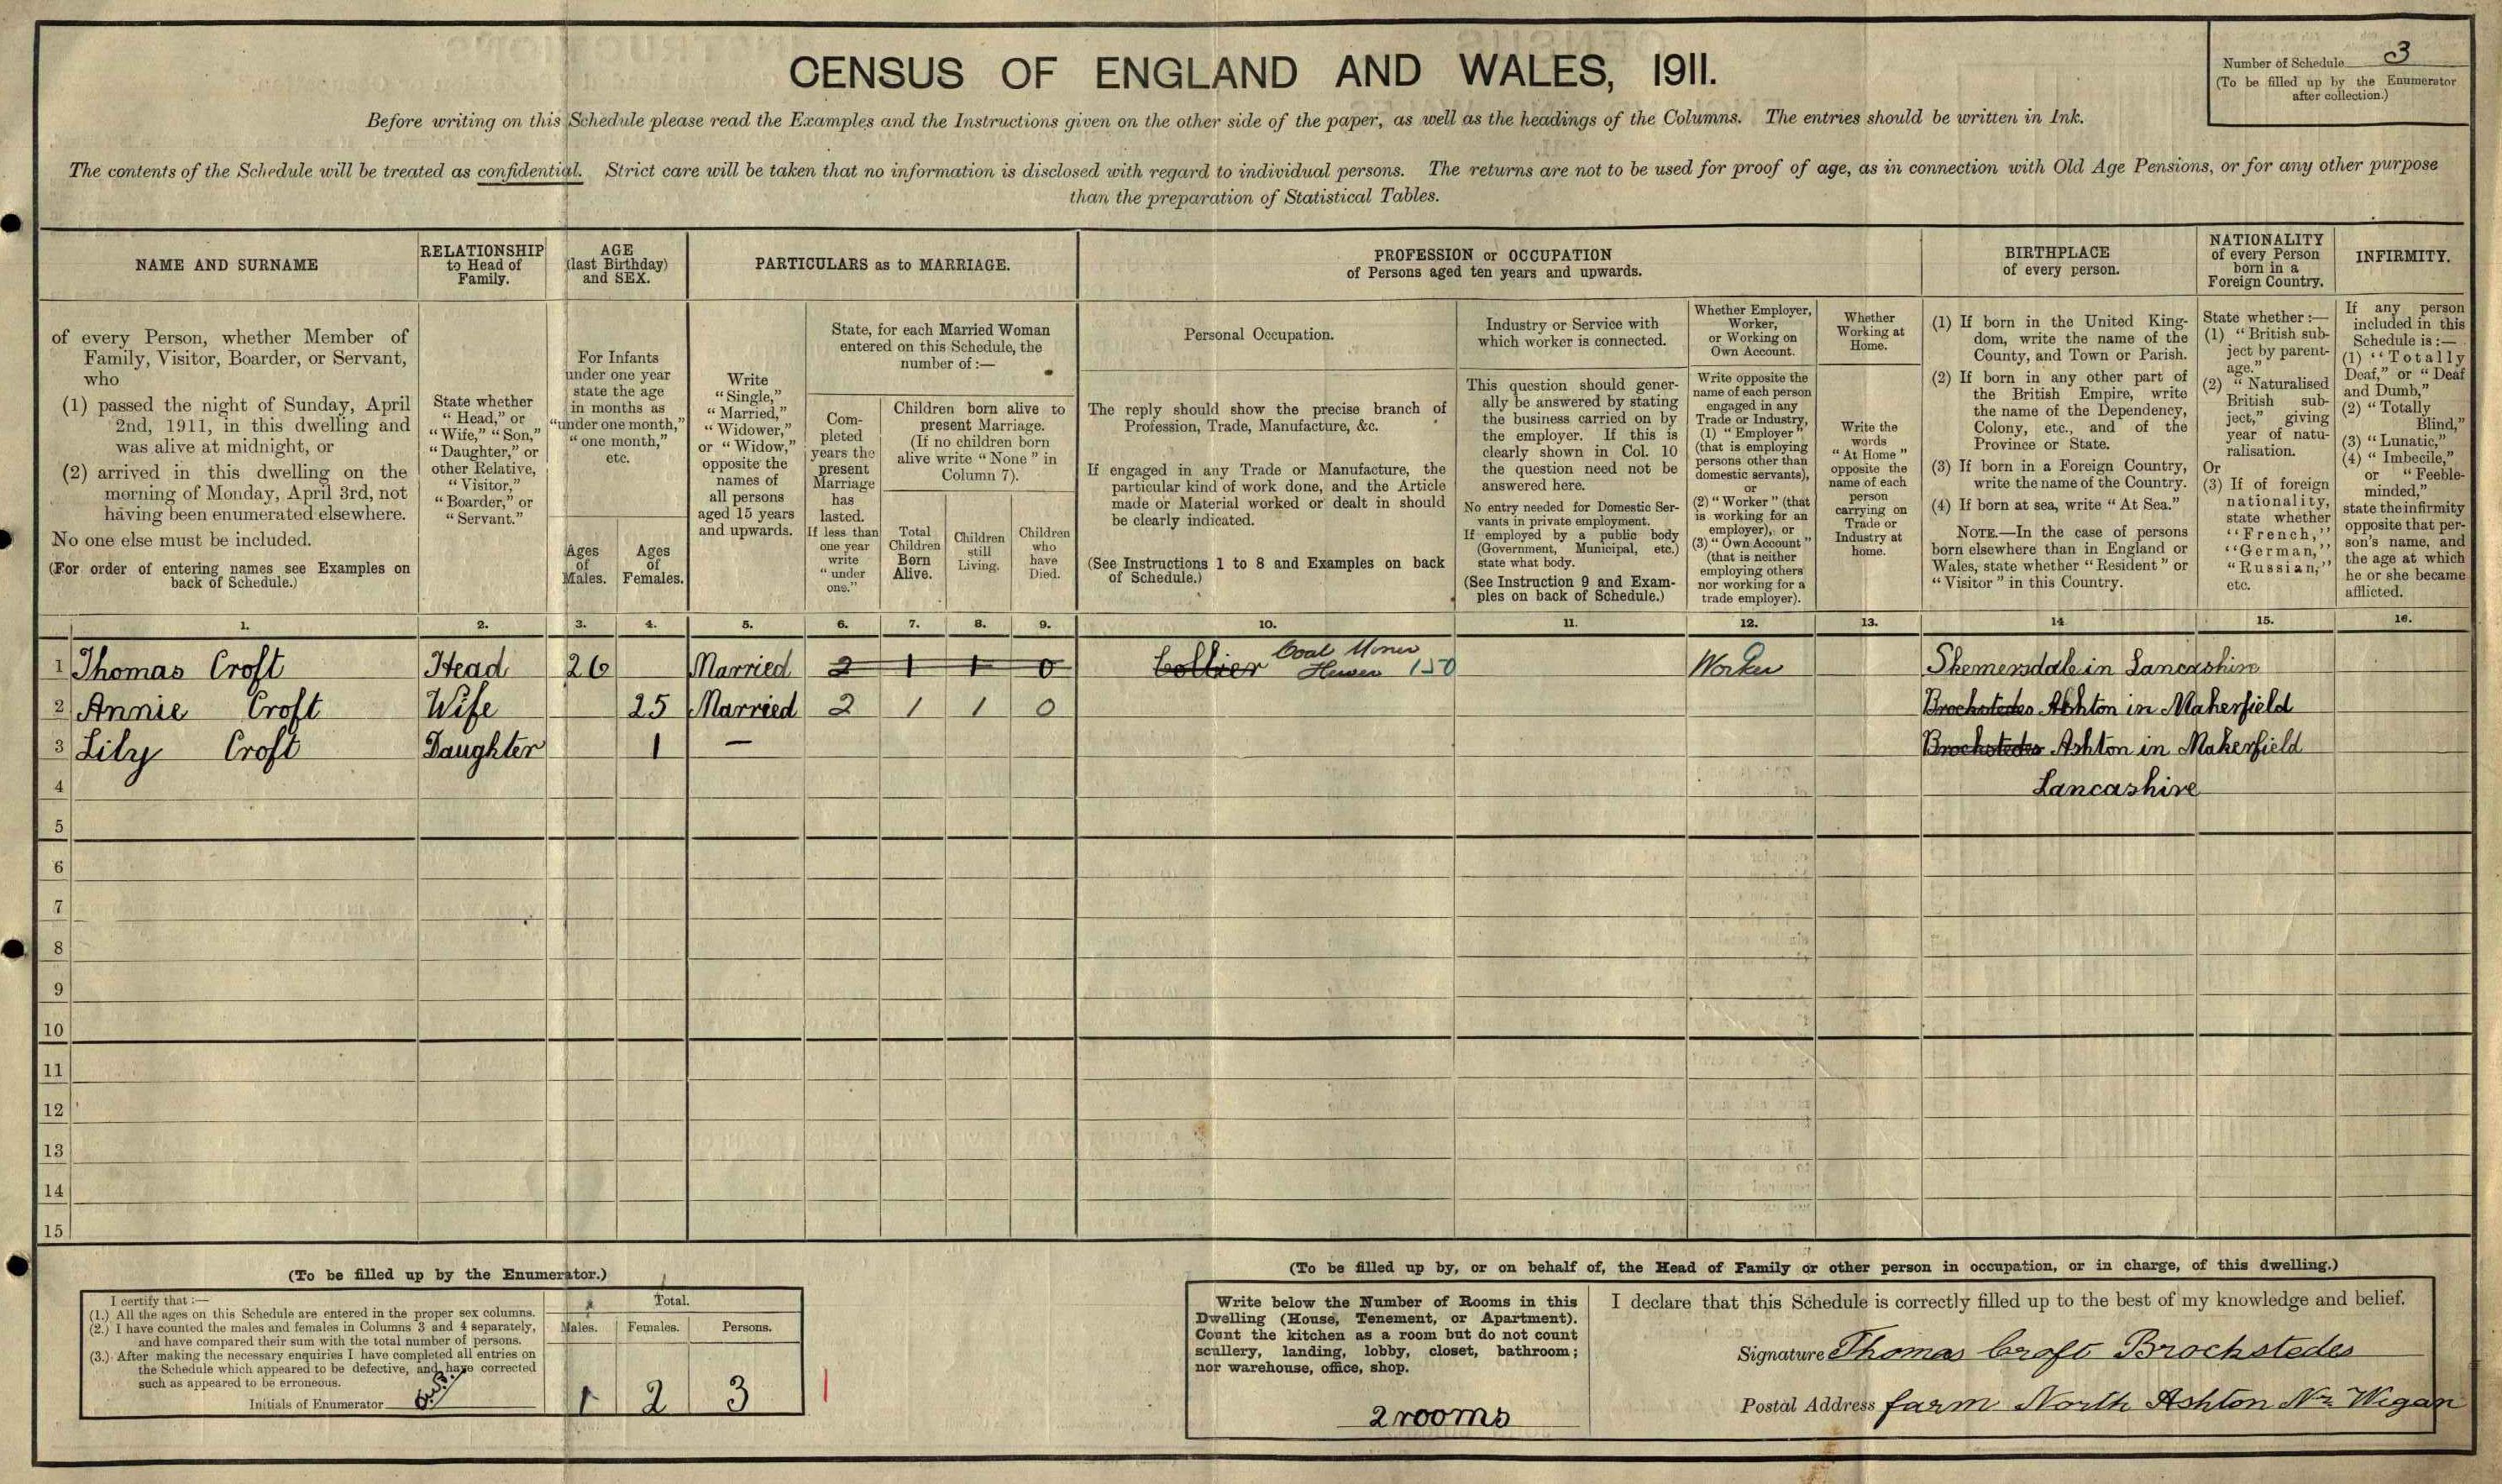 CENSUS OF ENGLAND AND WALES, 1911.
Number of Schedule 3
(To be filled up by the Enumerator
after collection.)
Before writing on this Schedule please read the Examples and the Instructions given on the other side of the paper, as well as the headings of the Columns. The entries should be written in Ink.
The contents of the Schedule will be treated as confidential. Strict care will be taken that no information is disclosed with regard to individual persons. The returns are not to be used for proof of age, as in connection with Old Age Pensions, or for any other purpose
than the preparation of Statistical Tables.
NAME AND SURNAME
of every Person, whether Member of
Family, Visitor, Boarder, or Servant,
who
(1) passed the night of Sunday, April
2nd, 1911, in this dwelling and
was alive at midnight, or
(2) arrived in this dwelling on the
morning of Monday, April 3rd, not
having been enumerated elsewhere.
No one else must be included.
(For order of entering names see Examples on
back of Schedule.)
RELATIONSHIP
to Head of
Family.
State whether
"Head," or
"Wife," "Son,"
"Daughter," or
other Relative,
"Visitor,"
"Boarder," or
"Servant."
AGE
(last Birthday)
and SEX.
For Infants
under one year
state the age
in months as
"under one month,"
"one month,"
etc.
Ages
of
Males.
Ages
of
Females.
PARTICULARS as to MARRIAGE.
Write
"Single,"
"Married,"
"Widower,"
or "Widow,"
opposite the
names of
all persons
aged 15 years
and upwards.
State, for each Married Woman
entered on this Schedule, the
number of:—
Com-
pleted
years the
present
Marriage
has
lasted.
If less than
one year
write
"under
one."
Children born alive to
present Marriage.
(If no children born
alive write "None" in
Column 7).
Total
Children
Born
Alive.
Children
still
Living.
Children
who
have
Died.
PROFESSION or OCCUPATION
of Persons aged ten years and upwards.
Personal Occupation.
The reply should show the precise branch of
Profession, Trade, Manufacture, &c.
If engaged in any Trade or Manufacture, the
particular kind of work done, and the Article
made or Material worked or dealt in should
be clearly indicated.
(See Instructions 1 to 8 and Examples on back
of Schedule.)
Industry or Service with
which worker is connected.
This question should gener-
ally be answered by stating
the business carried on by
the employer. If this is
clearly shown in Col. 10
the question need not be
answered here.
No entry needed for Domestic Ser-
vants in private employment.
If employed by a public body
(Government, Municipal, etc.)
state what body.
(See Instruction 9 and Exam-
ples on back of Schedule.)
Whether Employer,
Worker,
or Working on
Own Account.
Write opposite the
name of each person
engaged in any
Trade or Industry,
(1) "Employer"
(that is employing
persons other than
domestic servants),
or
(2) "Worker" (that
is working for an
employer), or
(3) "Own Account"
(that is neither
employing others
nor working for a
trade employer).
Whether
Working at
Home.
Write the
words
"At Home"
opposite the
name of each
person
carrying on
Trade or
Industry at
home.
BIRTHPLACE
of every person.
(1) If born in the United King-
dom, write the name of the
County, and Town or Parish.
(2) If born in any other part of
the British Empire, write
the name of the Dependency,
Colony, etc., and of the
Province or State.
(3) If born in a Foreign Country,
write the name of the Country.
(4) If born at sea, write "At Sea."
NOTE.—In the case of persons
born elsewhere than in England or
Wales, state whether "Resident" or
"Visitor" in this Country.
NATIONALITY
of every Person
born in a
Foreign Country.
State whether:—
(1) "British sub-
ject by parent-
age."
(2) "Naturalised
British sub-
ject," giving
year of natu-
ralisation.
Or
(3) If of foreign
nationality,
state whether
"French,"
"German,"
"Russian,"
etc.
INFIRMITY.
If any person
included in this
Schedule is:—
(1) "Totally
Deaf," or "Deaf
and Dumb,"
(2) "Totally
Blind,"
(3) "Lunatic,"
(4) "Imbecile,"
or "Feeble-
minded,"
state the infirmity
opposite that per-
son's name, and
the age at which
he or she became
afflicted.
1. 2. 3. 4. 5. 6. 7. 8. 9. 10. 11. 12. 13. 14 15. 16.
1 Thomas Croft Head 26 Married 2 1 1 0 Collier Coal Miner Hewer 150 Worker Skemersdale in Lancashire
2 Annie Croft Wife 25 Married 2 1 1 0 Brockstedes Ashton in Makerfield
3 Lily Croft Daughter 1 — Brockstedes Ashton in Makerfield
4 Lancashire
5
6
7
8
9
10
11
12
13
14
15
(To be filled up by the Enumerator.)
I certify that:—
(1.) All the ages on this Schedule are entered in the proper sex columns.
(2.) I have counted the males and females in Columns 3 and 4 separately,
and have compared their sum with the total number of persons.
(3.) After making the necessary enquiries I have completed all entries on
the Schedule which appeared to be defective, and have corrected
such as appeared to be erroneous.
Initials of Enumerator
Total.
Males. Females. Persons.
1 2 3
(To be filled up by, or on behalf of, the Head of Family or other person in occupation, or in charge, of this dwelling.)
Write below the Number of Rooms in this
Dwelling (House, Tenement, or Apartment).
Count the kitchen as a room but do not count
scullery, landing, lobby, closet, bathroom;
nor warehouse, office, shop.
2 rooms
I declare that this Schedule is correctly filled up to the best of my knowledge and belief.
Signature Thomas Croft Brockstedes
Postal Address farm North Ashton Nr Wigan